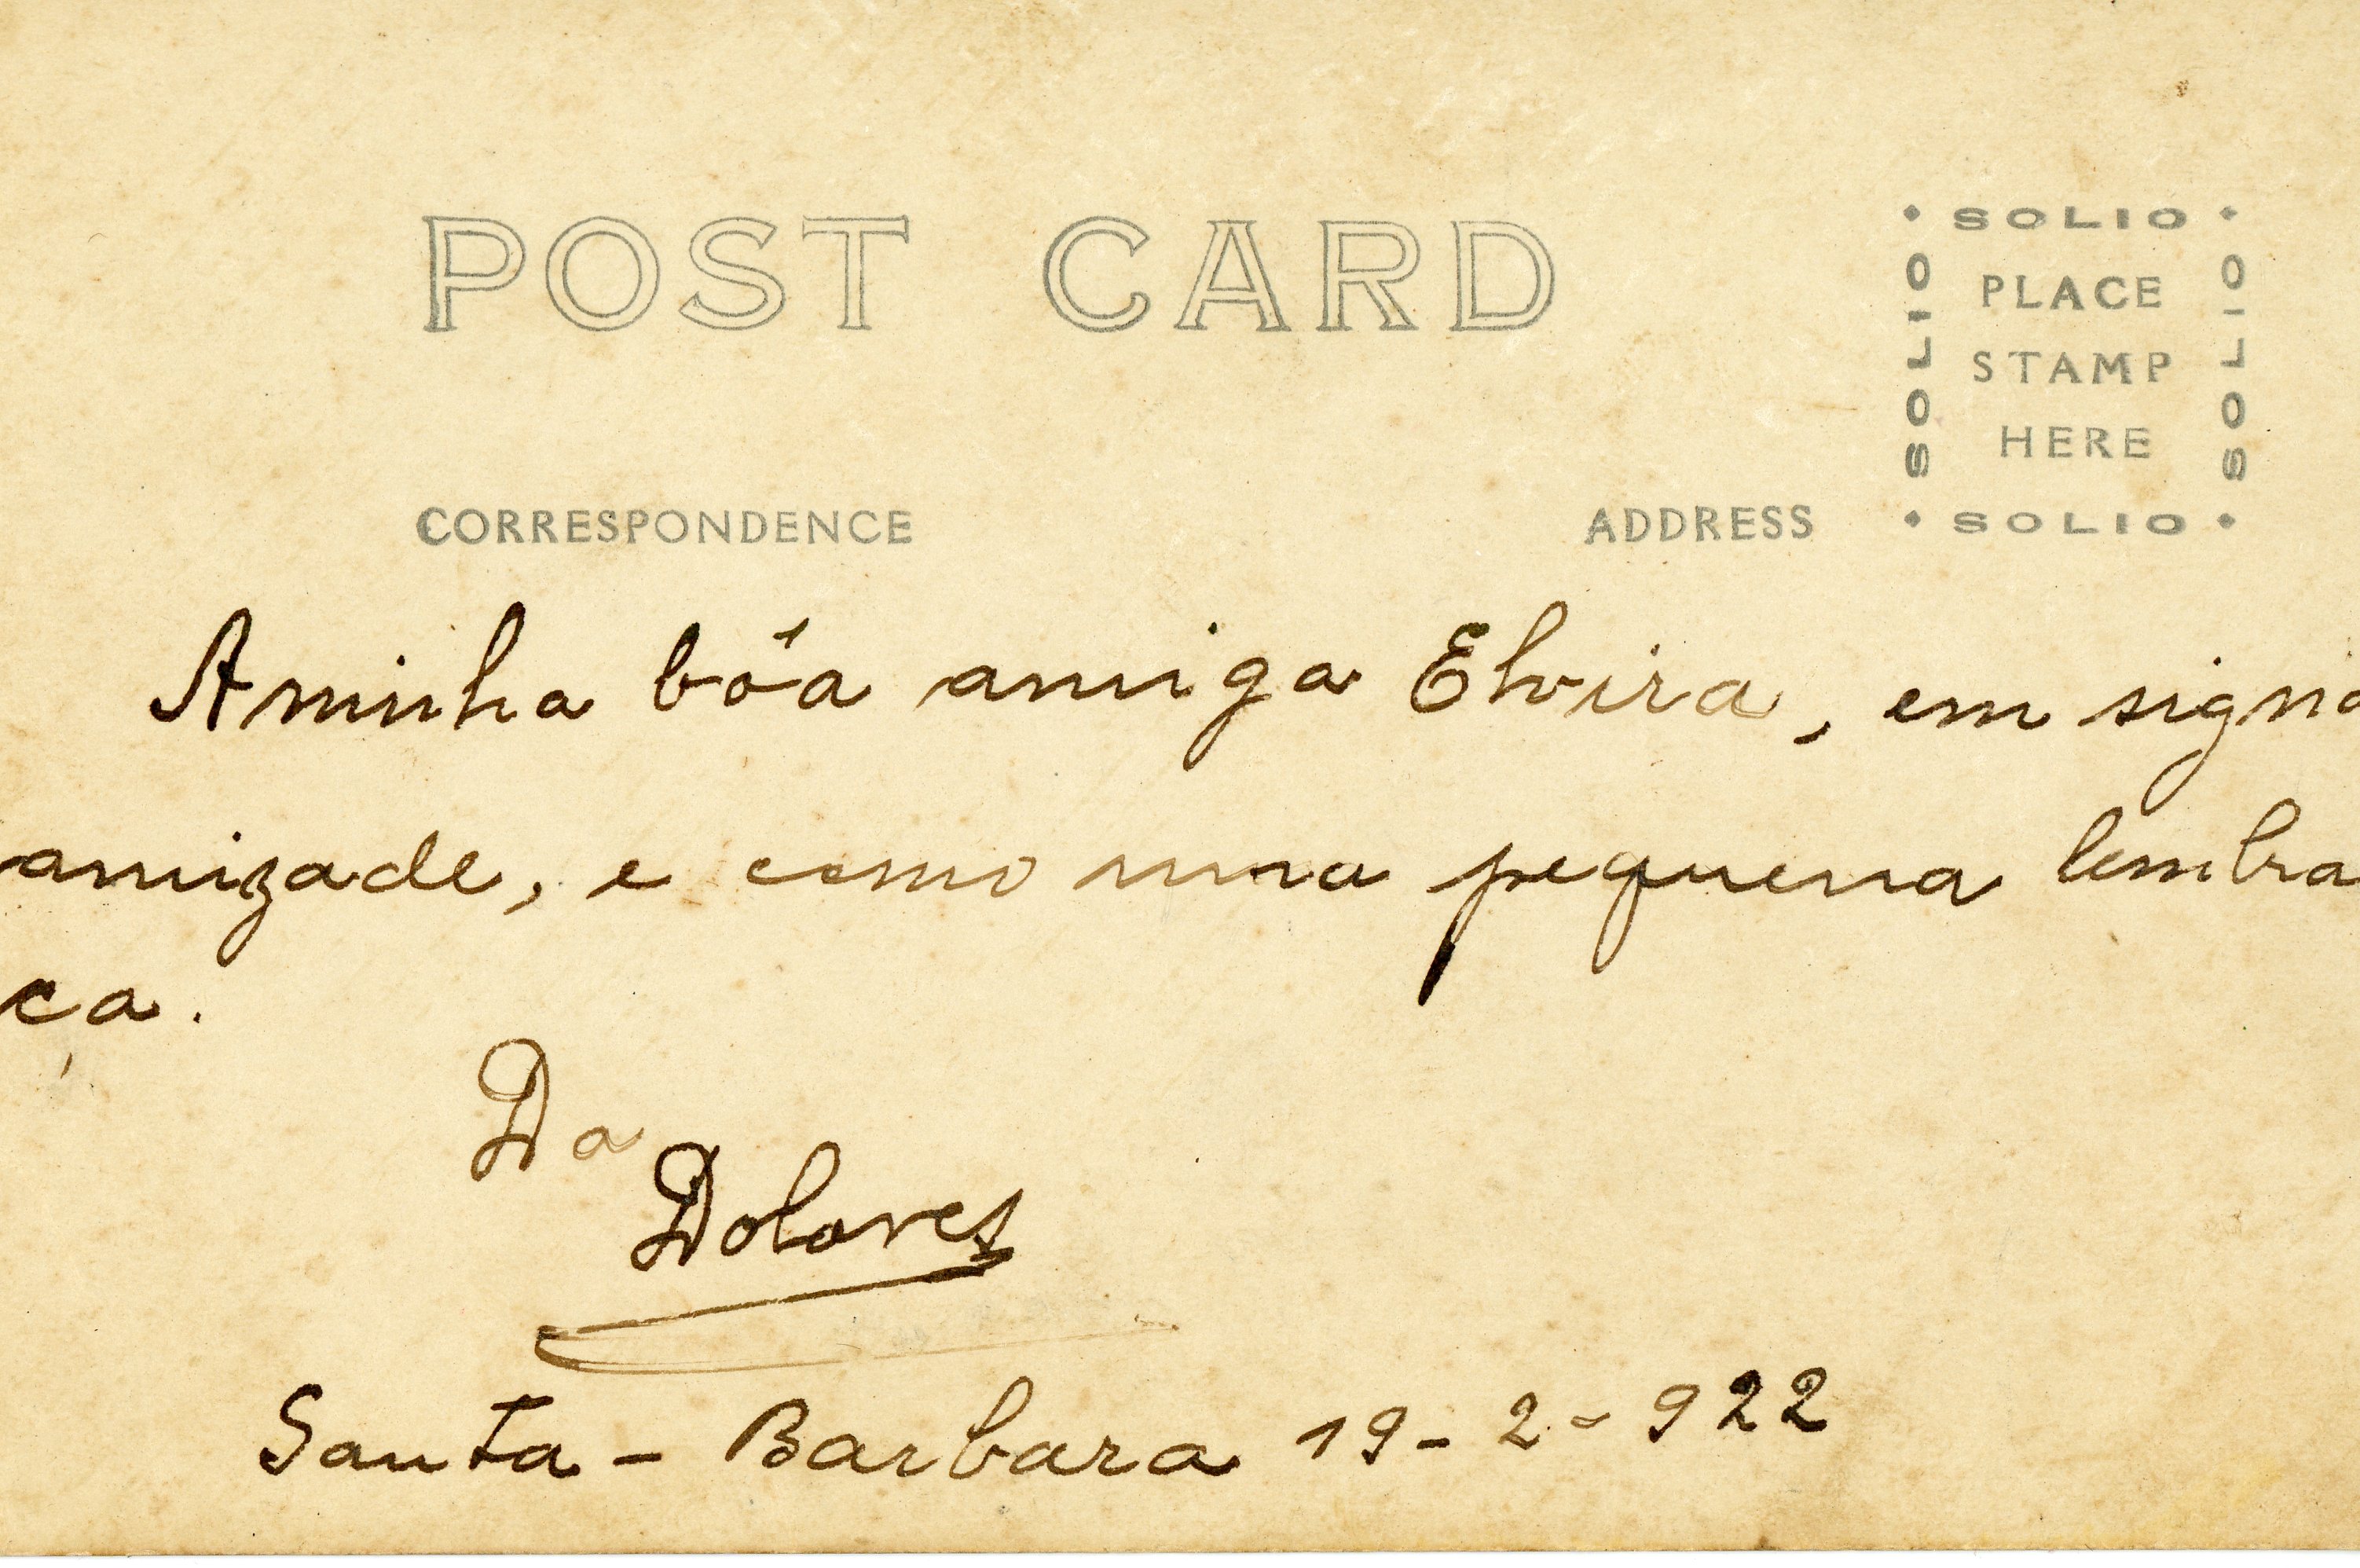 POST CARD
SOLIO
SOLIO
PLACE
STAMP
HERE
SOLIO
SOLIO
CORRESPONDENCE
ADDRESS
A minha bôa amiga Elvira, em signa
amizade, e como uma pequena lembra
ça.
Da
Dolores
Santa - Barbara 19 - 2 - 922